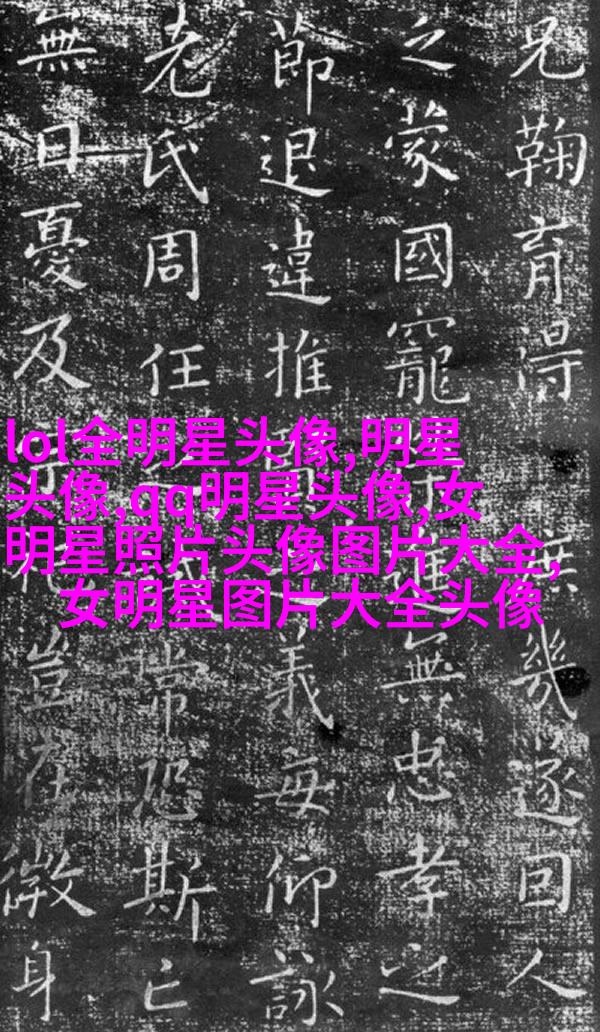 lol全明星头像,明星
头像,qq明星头像,女
明星照片头像图片大全,
女明星图片大全头像
兄鞠育得庶幾遂回人
之蒙國寵進無忠孝之
節退違推義每仰詠
老氏周任常恐斯亡
無日憂及豈在微身